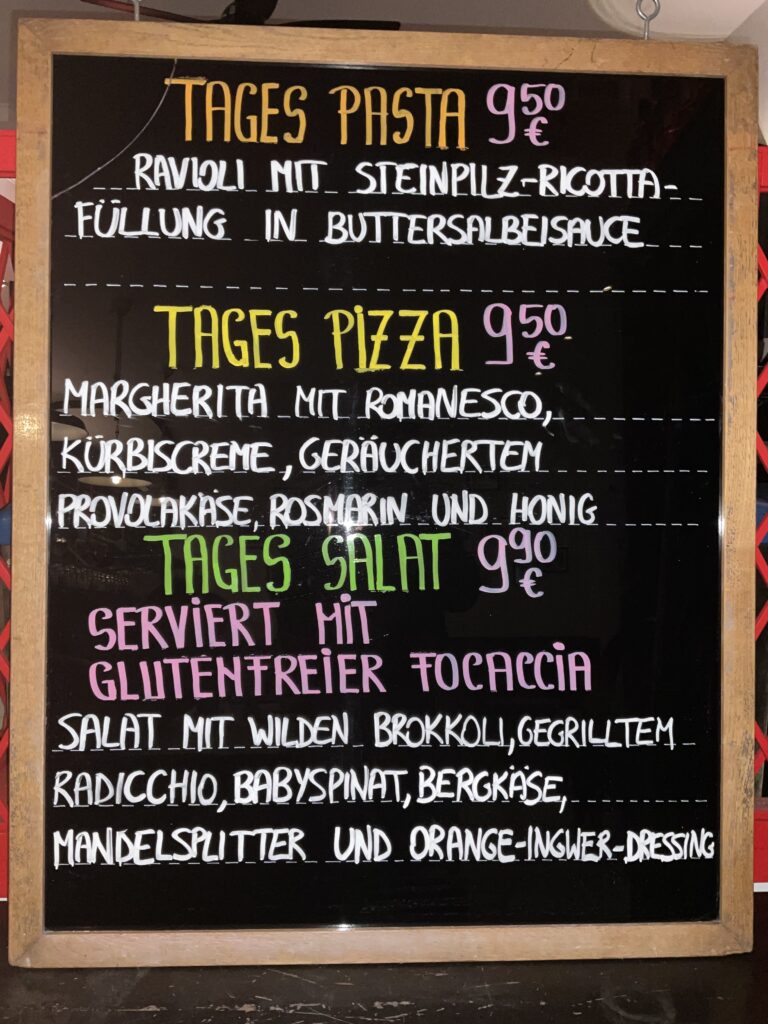 TAGES PASTA 9,50 €
RAVIOLI MIT STEINPILZ-RICOTTA-
FÜLLUNG IN BUTTERSALBEISAUCE
TAGES PIZZA 9,50 €
MARGHERITA MIT ROMANESCO,
KÜRBISCREME, GERÄUCHERTEM
PROVOLAKÄSE, ROSMARIN UND HONIG
TAGES SALAT 9,90 €
SERVIERT MIT
GLUTENFREIER FOCACCIA
SALAT MIT WILDEN BROKKOLI, GEGRILLTEM
RADICCHIO, BABYSPINAT, BERGKÄSE,
MANDELSPLITTER UND ORANGE-INGWER-DRESSING